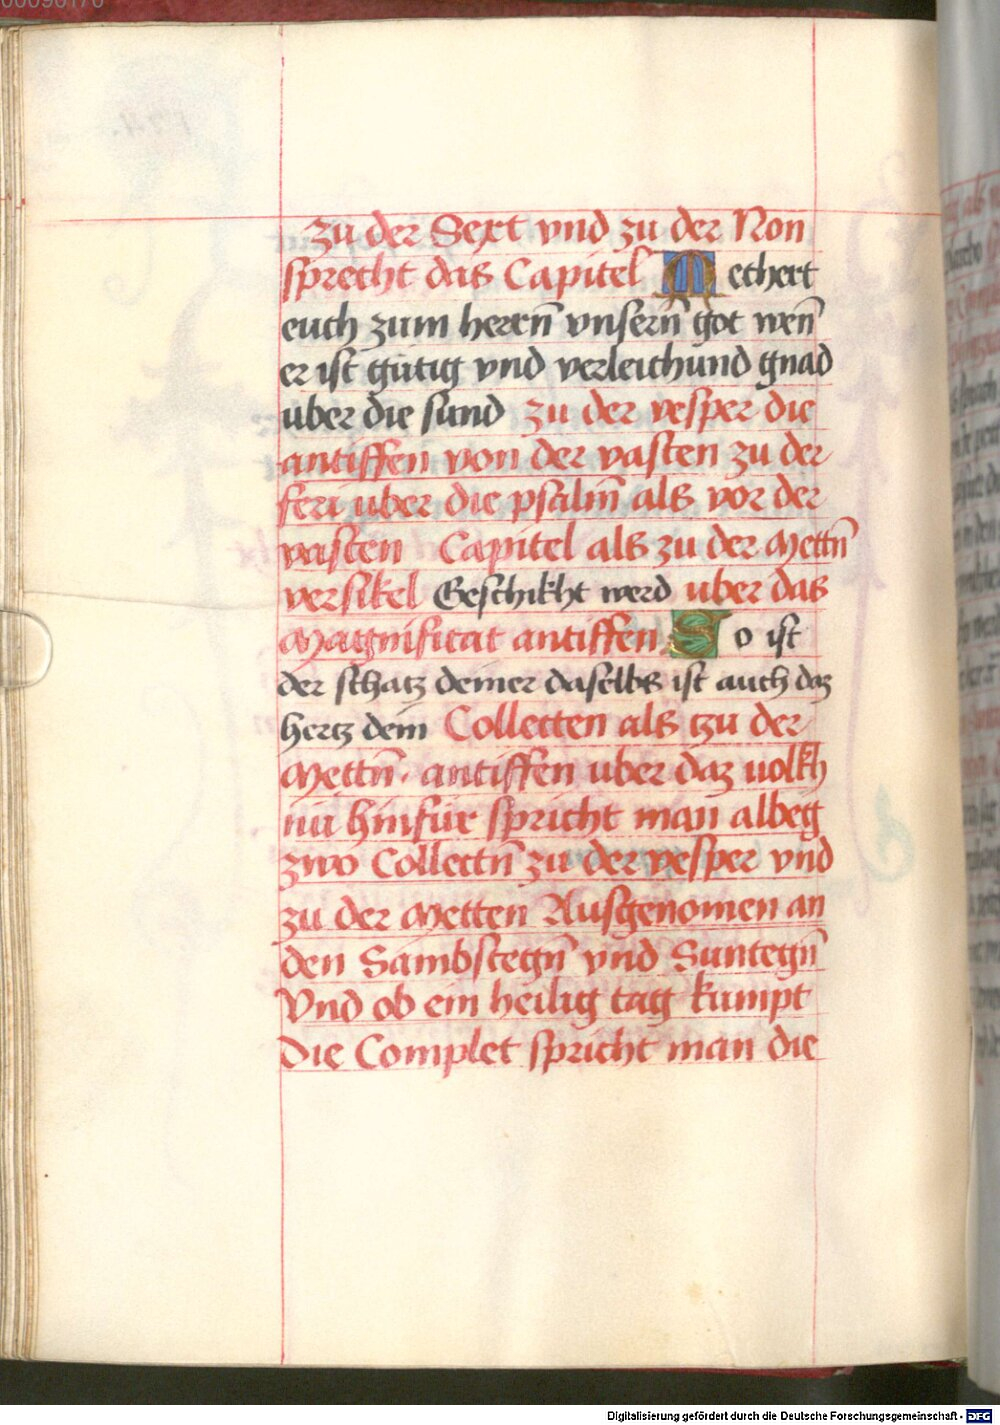 zu der Sext vnd zu der Non
sprecht das Capitel M echert
euch zum herrn̄ vnsern̄ got wen̄
er ist gütig vnd verleichund gnad
uber die sund zu der vesper die
antiffen von der vasten zu der
feri uber die psalm̄ als vor der
vasten Capitel als zu der Mettn̄
versikel Geschikht werd uber das
Magnificat antiffen S o ist
der schatz deiner daselbs ist auch daz
hertz dein Collecten als tzu der
Mettn̄. antiffen uber daz uolkh
nu hinfür spricht man albeg
zwo Collectn̄ zu der vesper vnd
zu der Metten Ausgenomen an
den Sambstegn̄ vnd Suntegn̄
Vnd ob ein heilig tag kumpt
Die Complet spricht man die
Digitalisierung gefördert durch die Deutsche Forschungsgemeinschaft - DFG